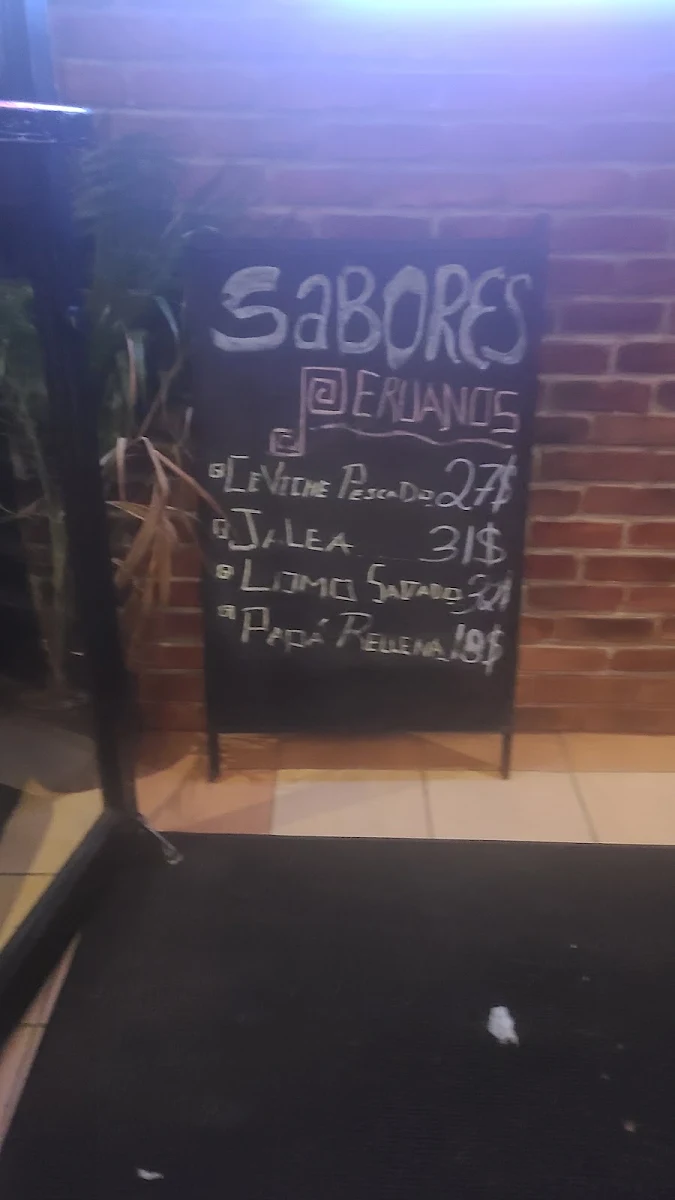 SaBORES
PERUANOS
CEVICHE PESCADO 27$
JALEA 31$
LOMO SALTADO
PAPÁ RELLENA 18$